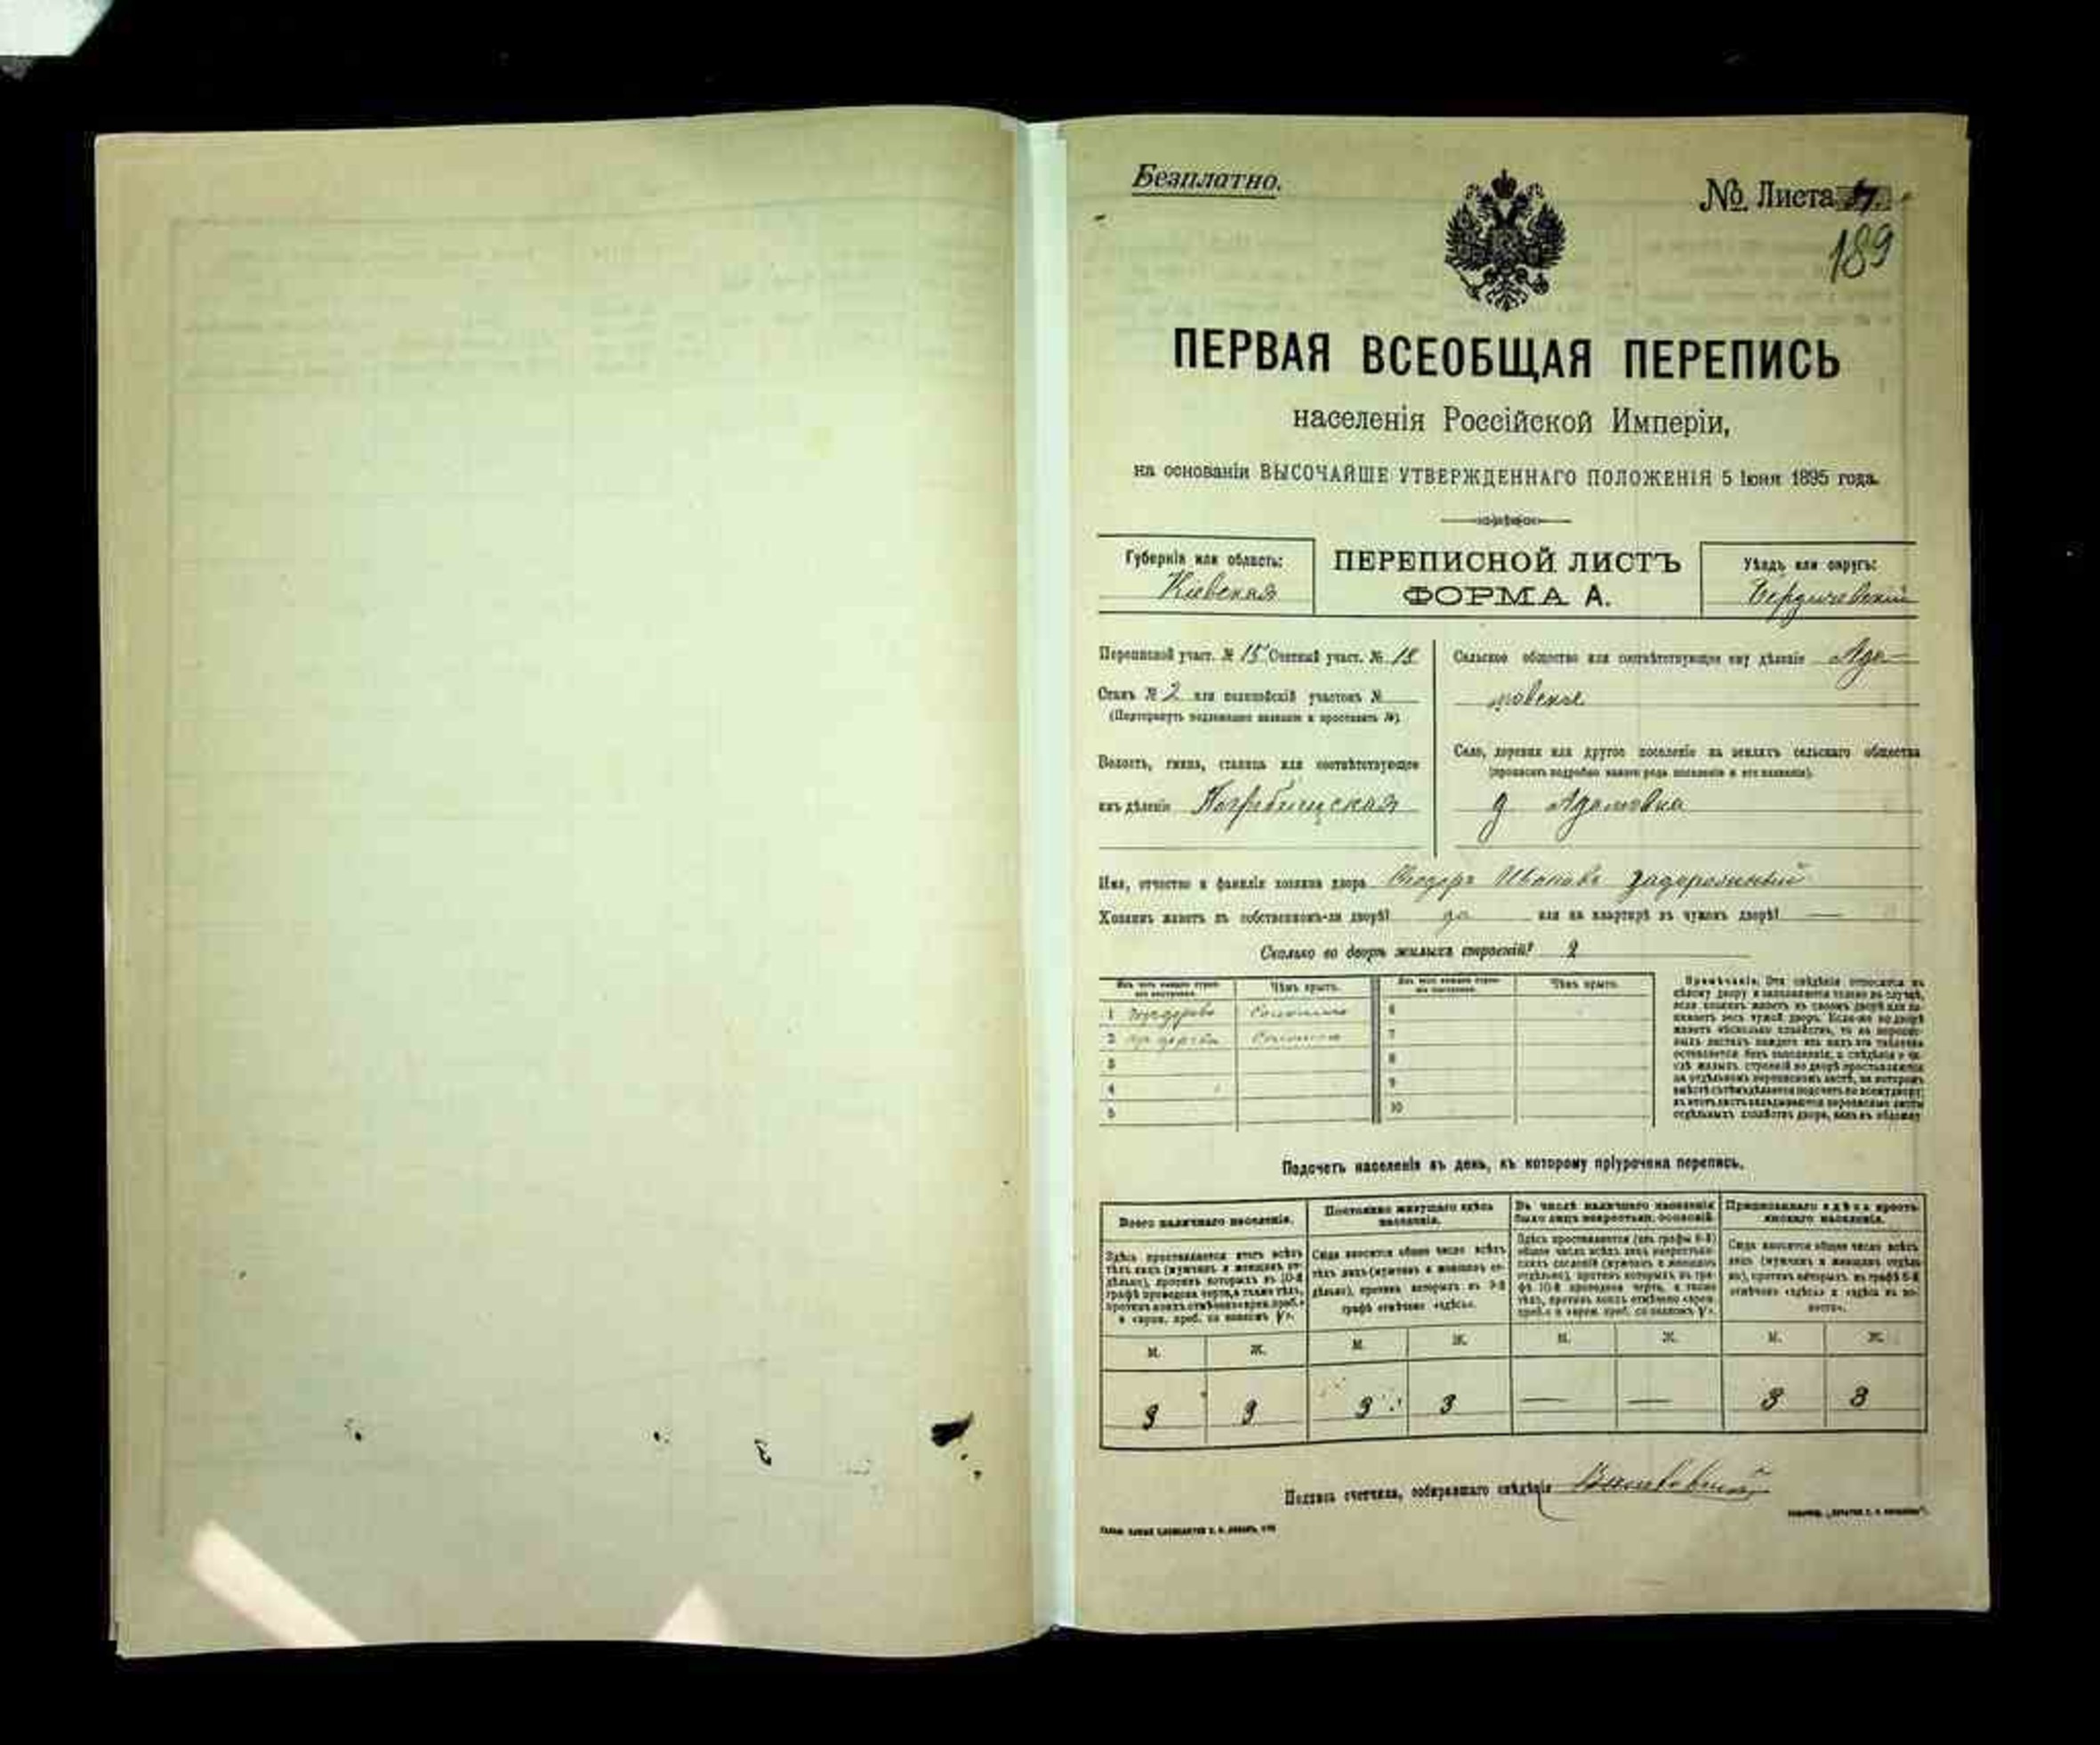 Безплатно.
№ Листа
189
ПЕРВАЯ ВСЕОБЩАЯ ПЕРЕПИСЬ
населенія Россійской Имперіи,
на основаніи ВЫСОЧАЙШЕ УТВЕРЖДЕННАГО ПОЛОЖЕНІЯ 5 Іюня 1895 года.
Губернія или область:
Кіевская
ПЕРЕПИСНОЙ ЛИСТЪ
ФОРМА А.
Уѣздъ или округъ:
Бердичевскій
Переписной участ. № 15 Счетный участ. № 18
Станъ № 2 или полицейскій участокъ №
(Подчеркнуть надлежащее названіе и проставить №)
Волость, гмина, станица или соотвѣтствующее
имъ дѣленіе Погребищская
Сельское общество или соотвѣтствующее ему дѣленіе Ада-
мовское
Село, деревня или другое поселеніе на земляхъ сельскаго общества
(прописать подробно какого рода поселеніе и его названіе).
д Адамовка
Имя, отчество и фамилія хозяина двора Ѳеодоръ Ивановъ Задорожный
Хозяинъ живетъ въ собственномъ-ли дворѣ? да или на квартирѣ въ чужомъ дворѣ? —
Сколько во дворѣ жилыхъ строеній? 2
Изъ чего каждое строеніе построено.
Чѣмъ крыто.
Изъ чего каждое строеніе построено.
Чѣмъ крыто.
1 дерева Соломою 6
2 дерева Соломою 7
3 8
4 9
5 10
Примѣчаніе. Эти свѣдѣнія относятся къ
цѣлому двору и заполняются только въ случаѣ,
если хозяинъ живетъ въ своемъ дворѣ или за-
нимаетъ весь чужой дворъ. Если-же во дворѣ
живетъ нѣсколько хозяйствъ, то на перепис-
ныхъ листахъ каждаго изъ нихъ эта табличка
остается безъ заполненія, а свѣдѣнія о чи-
слѣ жилыхъ строеній во дворѣ проставляются
на отдѣльномъ переписномъ листѣ, на которомъ
вмѣстѣ съ тѣмъ дѣлается подсчетъ по всему двору;
въ этотъ листъ вкладываются переписные листы
отдѣльныхъ хозяйствъ двора, какъ въ обложку
Подсчетъ населенія въ день, къ которому пріурочена перепись.
Всего наличнаго населенія.
Постоянно живущаго здѣсь
населенія.
Въ числѣ наличнаго населенія
было лицъ некрестьян. сословій.
Приписаннаго здѣсь кресть-
янскаго населенія.
Здѣсь проставляется итогъ всѣхъ
тѣхъ лицъ (мужчинъ и женщинъ от-
дѣльно), противъ которыхъ въ 10-й
графѣ проведена черта, а также тѣхъ,
противъ коихъ отмѣчено «врем. преб.»
и «врем. преб. со знакомъ V».
Сюда вносится общее число всѣхъ
тѣхъ лицъ (мужчинъ и женщинъ от-
дѣльно), противъ которыхъ въ 9-й
графѣ отмѣчено «здѣсь».
Здѣсь проставляется (изъ графы 6-й)
общее число всѣхъ лицъ некрестьян-
скихъ сословій (мужчинъ и женщинъ
отдѣльно), противъ которыхъ въ гра-
фѣ 10-й проведена черта, а также
тѣхъ, противъ коихъ отмѣчено «врем.
преб.» и «врем. преб. со знакомъ V».
Сюда вносится общее число всѣхъ
лицъ (мужчинъ и женщинъ отдѣль-
но), противъ которыхъ въ графѣ 8-й
отмѣчено «здѣсь» и «здѣсь въ во-
лости».
М. Ж. М. Ж. М. Ж. М. Ж.
3 3 3 3 — — 3 3
Подпись счетчика, собиравшаго свѣдѣнія